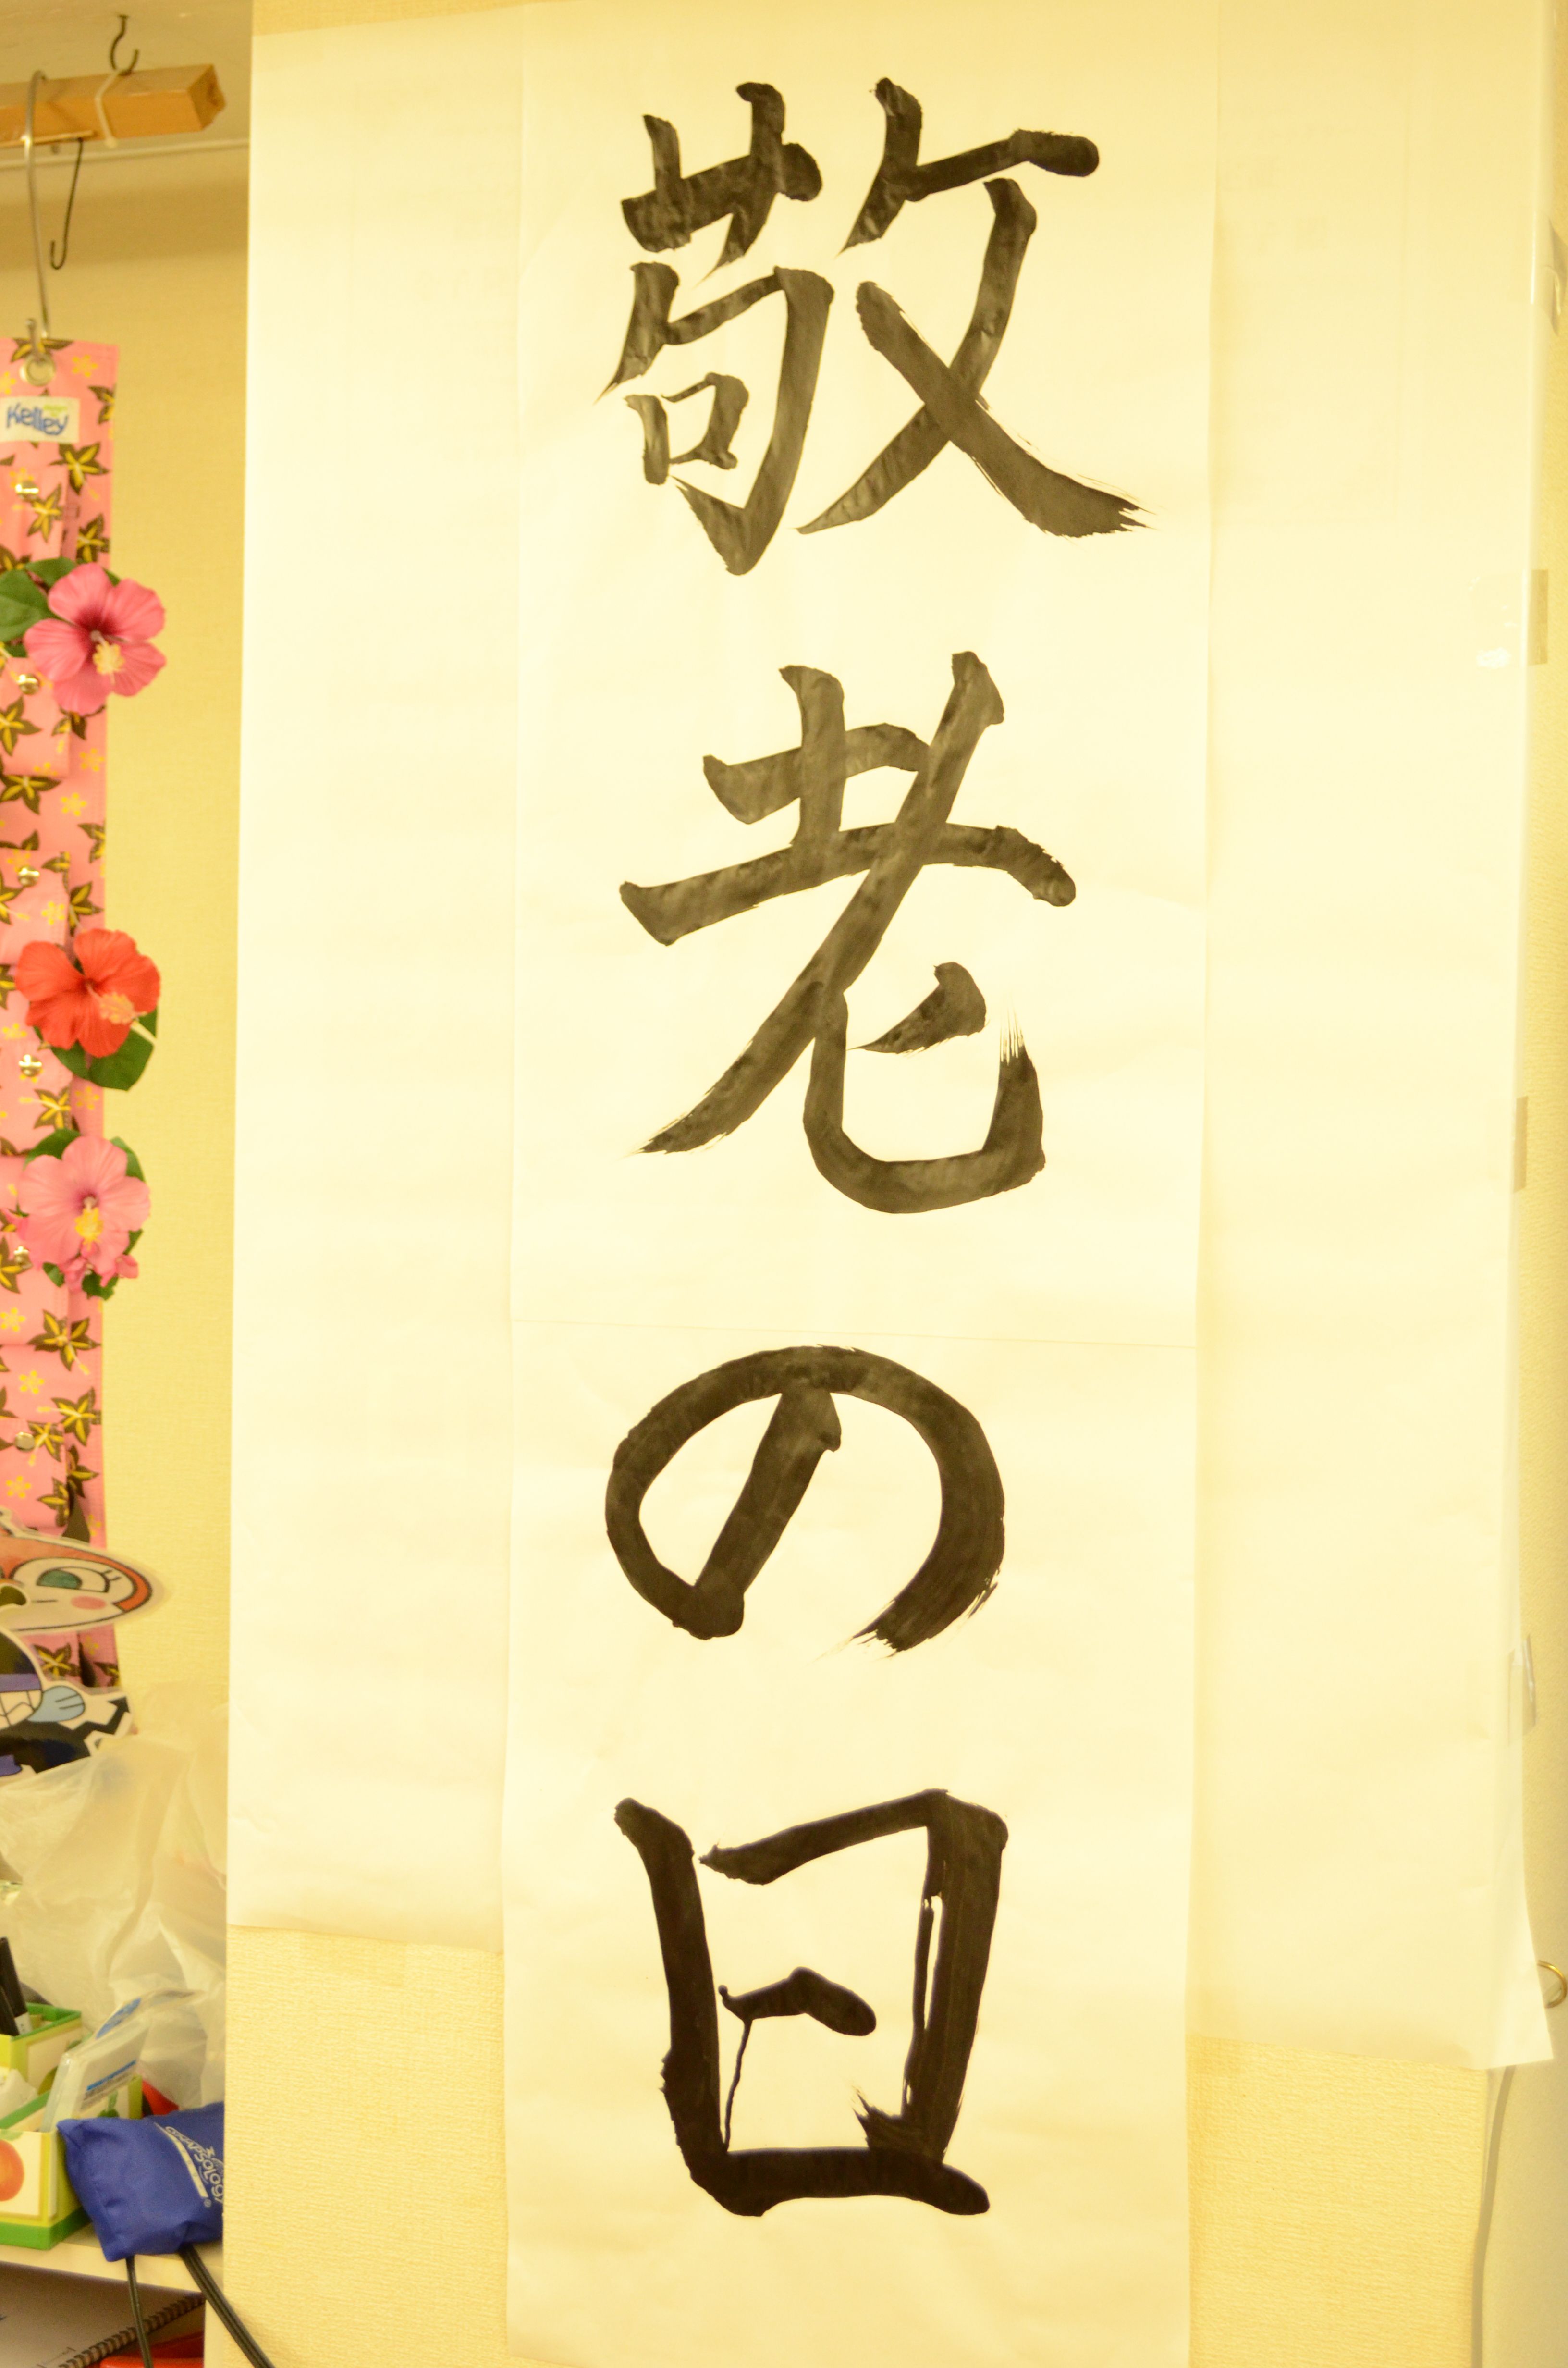 敬老の日
Kelley